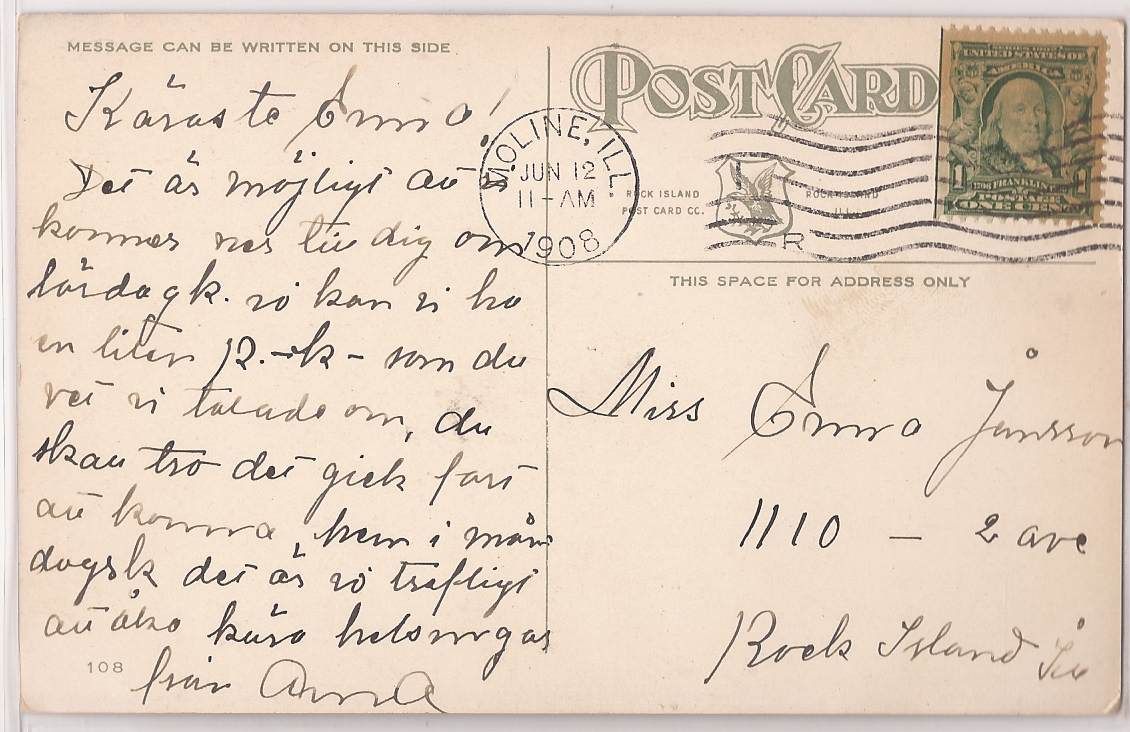 MESSAGE CAN BE WRITTEN ON THIS SIDE
POST CARD
Käraste Emma!
Det är möjligt att vi
kommer ner till dig om
lördag k. så kan vi ha
en liten P.-ik- som du
vet vi talade om, du
skall tro det gick fort
att komma hem i mån
dags k det är så trefligt
att åka kära helsningar
från Anna
108
MOLINE, ILL.
JUN 12
11-AM
1908
ROCK ISLAND
POST CARD CO.
ROCK ISLAND
ILL.
R
SERIES 1902
UNITED STATES OF
AMERICA
1 FRANKLIN 1
POSTAGE
ONE CENT
THIS SPACE FOR ADDRESS ONLY
Miss Emma Jånsson
1110 - 2 ave
Rock Island Ill